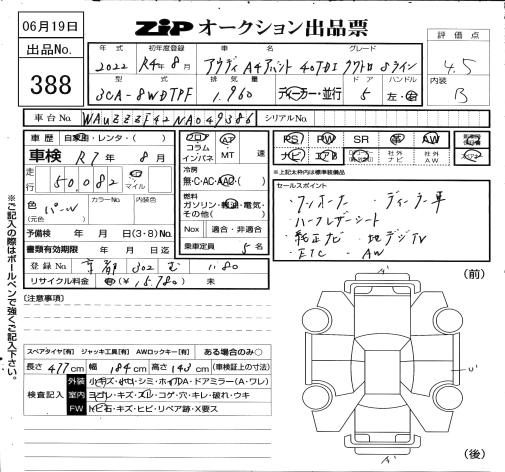 06月19日
ZIP オークション出品票
出品No.
388
評価点
4.5
内装
B
年式 初年度登録 車名 グレード
2022 R4年8月 アウディ A4アバント 40TDI クワトロ Sライン
型式 排気量 ドア ハンドル
3CA-8WDTPF 1.960 ディーラー・並行 5 左・右
車台No. WAUZZZF42NA049386 シリアルNo.
車歴 自家用・レンタ・( )
車検 R7年 8月
走行 50,082 km マイル
色(元色) パール カラーNo. 内装色
予備検 年 月 日(3・8)No.
書類有効期限 年 月 日迄
登録No. 京都 302 む 1180
リサイクル料金 (¥ 15,780) 未
フロア コラム インパネ
AT MT 速
冷房
無・C・AC・AAC・( )
燃料
ガソリン・軽油・電気・その他( )
Nox 適合・非適合
乗車定員 5名
PS PW SR 革 AW
ナビ エアB 社外ナビ 社外AW
※上記太枠内は標準装備品
セールスポイント
・ワンオーナー ・ディーラー車
・ハーフレザーシート
・純正ナビ ・地デジTV
・ETC ・AW
(注意事項)
スペアタイヤ[有] ジャッキ工具[有] AWロックキー[有] ある場合のみ○
長さ 477cm 幅 184cm 高さ 143cm (車検証上の寸法)
検査記入
外装 小キズ・凹・シミ・ホイルA・ドアミラー(A・ワレ)
室内 ヨゴレ・キズ・スレ・コゲ・穴・キレ・破れ・ウキ
FW トビ石・キズ・ヒビ・リペア跡・X要ス
(前)
(後)
※ご記入の際はボールペンで強くご記入下さい。